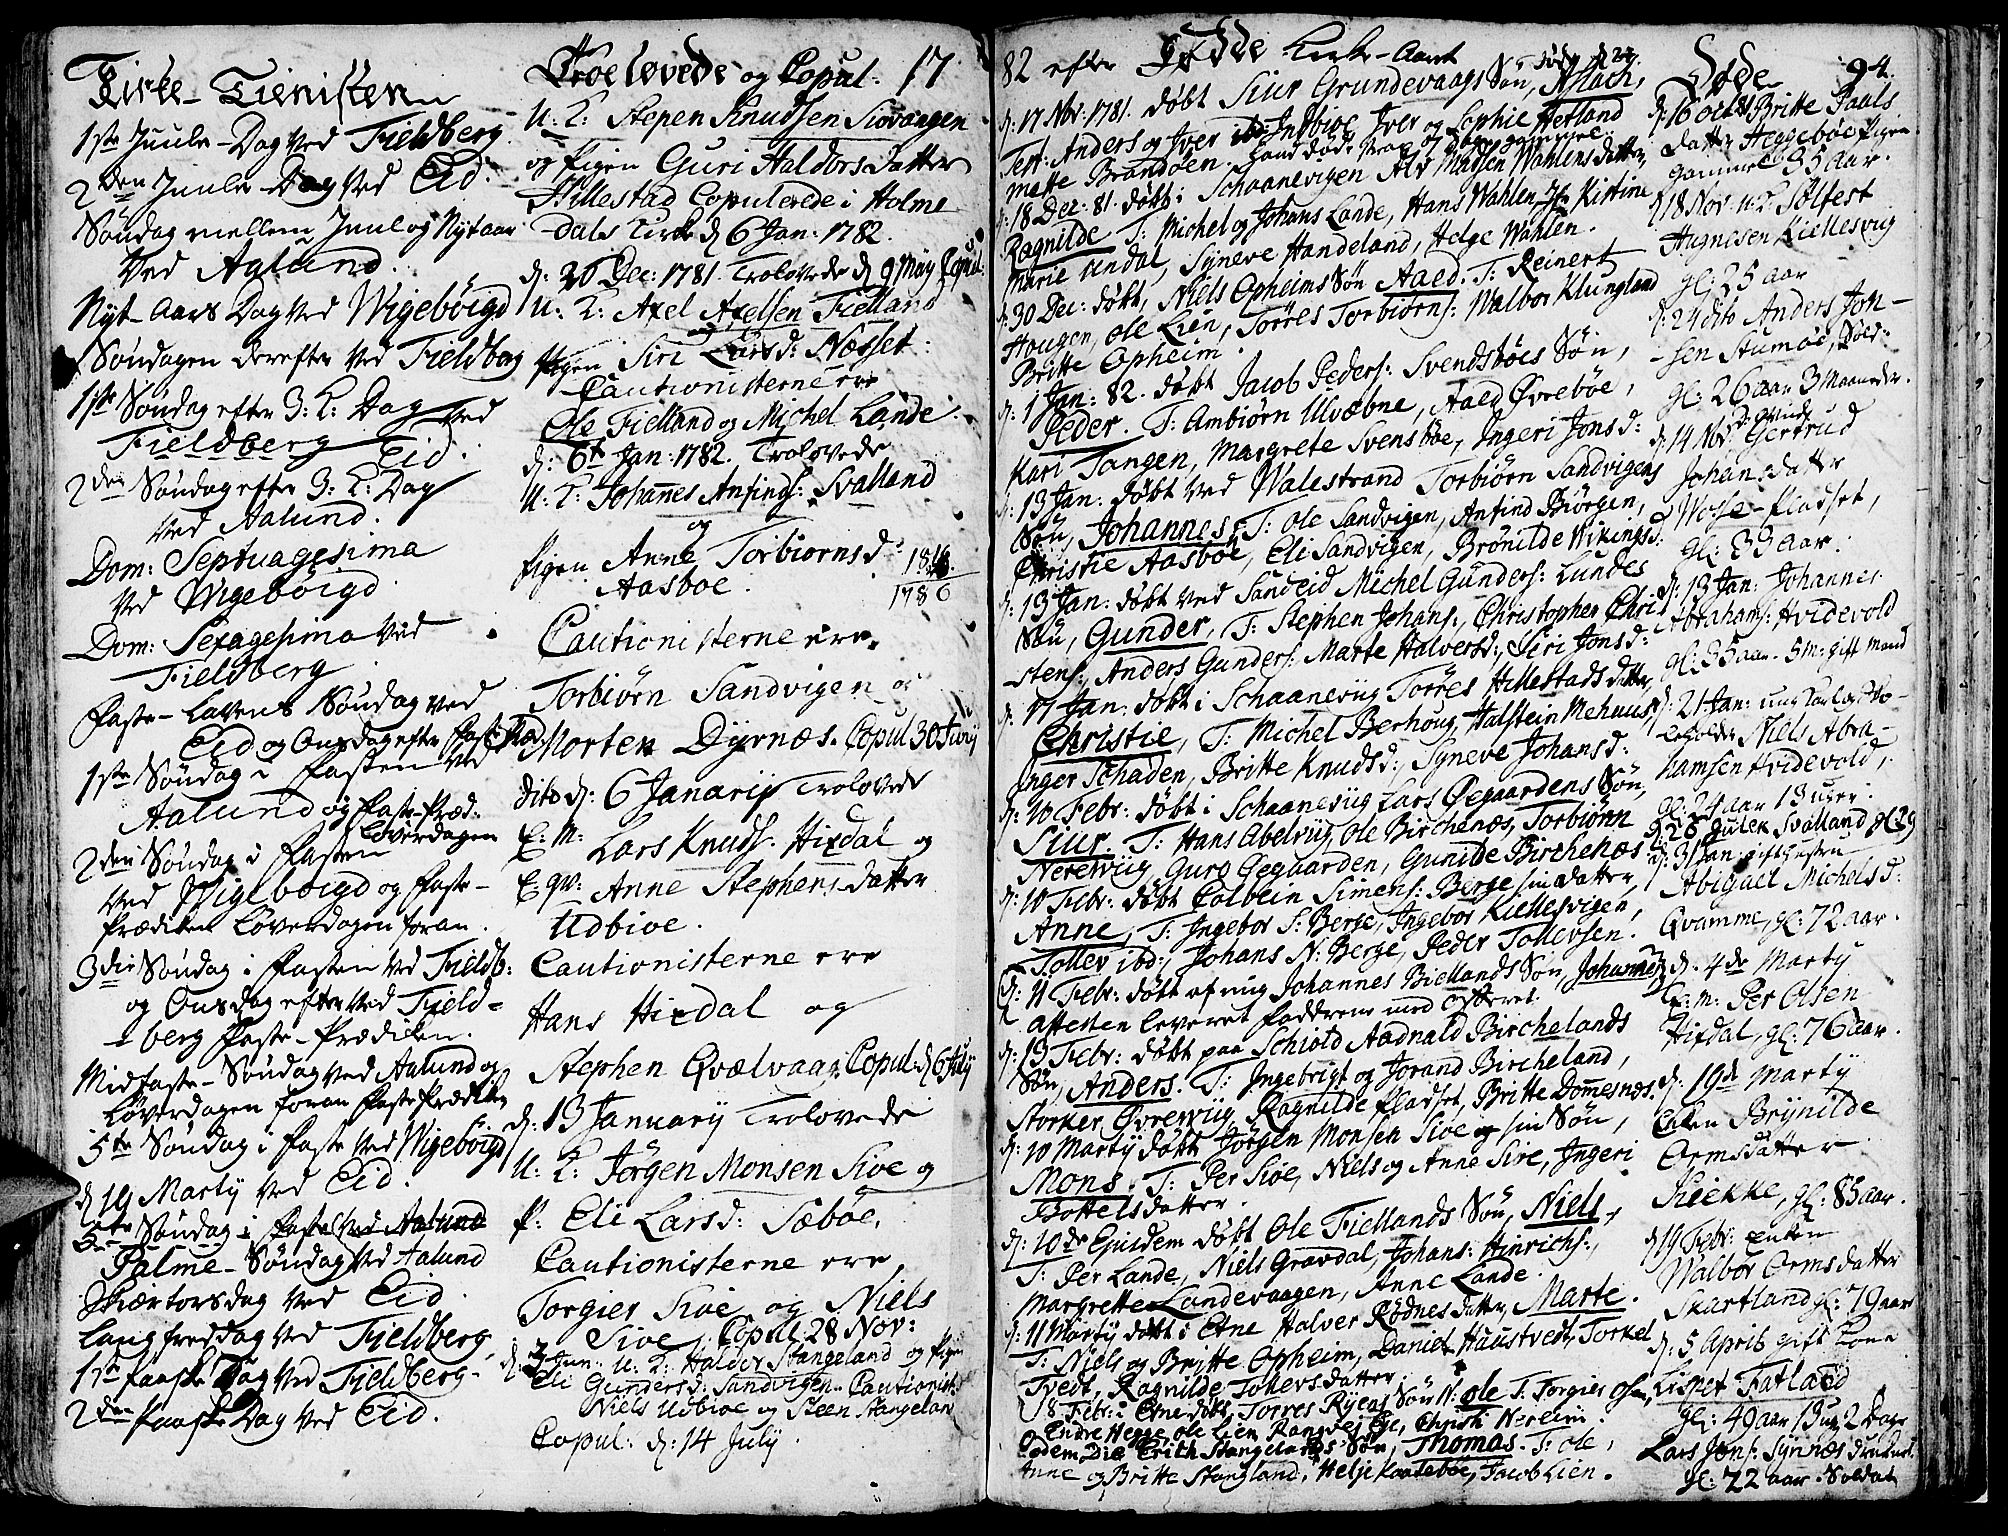 Kirke-Tienisten
1ste Juule-Dag ved Fieldberg
2den Juule-Dag ved Eid.
Søndag mellem Juul og Nytaar
ved Aalund.
Nyt-Aars Dag ved Wigebøigd
Søndagen derefter ved Fieldberg
1ste Søndag efter 3: K: Dag ved
Fieldberg Eid.
2den Søndag efter 3: K: Dag
ved Aalund.
Dom: Septuagesima
ved Wigebøigd
Dom: Sexagesima ved
Fieldberg
Faste-Lavens Søndag ved
Eid og Onsdag efter Faste Præd.
1ste Søndag i Fasten ved
Aalund og Faste-Præd:
Løverdagen
2den Søndag i Fasten
ved Wigebøigd og Faste-
Prædiken Løverdagen foran.
3die Søndag i Fasten ved Fieldb:
og Onsdag efter ved Field-
berg Faste-Prædiken.
Midfaste-Søndag ved Aalund og
Løverdagen foran Faste Prædiken
5te Søndag i Faste ved Wigebøigd
d 19 Martij ved Eid.
6te Søndag i Faste ved Aalund
Palme-Søndag ved Aalund
Skiertorsdag ved Eid.
Langfreddag ved Fieldberg,
1ste Paaske Dag ved Fieldberg.
2den Paaske Dag ved Eid.
Troelovede og Copul: 17
U: K: Stepen Knudsen Siovangen
og Pigen Guri Haldors Datter
Hillestad Copulerede i Holme
Dals Kirke d 6 Jan: 1782.
d: 26 Dec: 1781. Trolovede d 9 Maij Copul:
U: K: Axel Axelsen Fielland
og
Pigen Siri Larsd: Næsset:
Cautionisterne ere
Ole Fielland og Michel Lande.
d: 6te Jan: 1782. Trolovede
U: K: Johannes Anfinds: Svalland
og
Pigen Anne Torbiørnsd:
Aasboe.
1786
Cautionisterne ere
Torbiørn Sandvigen og
Morten Dyrnæs. Copul 30 Junij
dito d: 6 Janarij Trolovede
E: M: Lars Knuds. Hixdal og
E: qv: Anne Stephens datter
Udbioe.
Cautionisterne ere
Hans Hixdal og
Stephen Qvælvaag. Copul: d 6 Julij
d: 13 Januarij Trolovede
U: K: Jørgen Monsen Sioe og
P: Eli Larsd: Sæbøe,
Cautionisterne ere
Torgier Sioe og Niels
Sioe. Copul 28 Nov:
d: 3 Jun: U: K: Haldor Stangeland og Pigen
Eli Gundersd: Sandvigen. Cautionist:
Niels Udbioe og Steen Stangeland
Copul: d: 14 Julij.
82 efter Fødde Kirke-Aaret
d: 17 Nov: 1781. døbt Siur Grundevaags Søn, Aslach,
Test: Anders og Iver ibd: Indbioe, Iver og Sophie Hetland
Matte Brandøen.
d: 18 Dec: 81. døbt i Schaanevigen Alv Madsen Wahlens datter,
Ragnilde T: Michel og Johans Lande, Hans Wahlen, Kirstine
Marie Undal, Syneve Handeland, Helge Wahlen.
d: 30 Dec: døbt, Niels Opheims Søn Aaed. T: Reinert
Hougen, Ole Lien, Torres Torbiørns: Walbor Klungland
Britte Opheim.
d: 1 Jan: 82. døbt Jacob Peders: Svendsbøes Søn,
Peder. T: Ambiørn Ulvæbne, Aaed Øvrebøe,
Kari Tangen, Margrete Svensbøe, Ingeri Jonsd:
d: 13 Jan: døbt ved Walestrand Torbiørn Sandvigens
Søn, Johannes, T: Ole Sandvigen, Anfind Biørgen,
Christie Aasbøe, Eli Sandvigen, Brønilde Wikingsd:
d: 13 Jan: døbt ved Sandeid Michel Gunders: Lundes
Søn, Gunder, T: Stephen Johans:, Christopher Chri-
stens:, Anders Gunders: Marte Halversd:, Siri Jonsd:
d: 17 Jan: døbt i Schaaneviig Torres Hillestads datter,
Christie, T: Michel Berhoug, Halstein Mehuus,
Inger Schaden, Britte Knudsd:, Syneve Johansd:
d: 10 Febr: døbt i Schaaneviig Lars Øegaardens Søn,
Siur. T: Hans Abelviig, Ole Birchenæs, Torbiønn
Nereviig, Guro Øegaarden, Gunilde Birchenæs
d: 10 Febr: døbt Colbein Simens: Berge sin datter,
Anne, T: Ingebor S: Berge, Ingebor Kiellesvigen,
Tollev ibd:, Johans N: Berge, Peder Tollevsen.
d: 11 Febr: døbt af mig Johannes Biellands Søn, Johannes
Attesten leveret Fadderene med Offeret.
d: 13 Febr: døbt paa Schiold Aadnald Birchelands
Søn, Anders. T: Ingebrigt og Jorand Bircheland,
Storker Øvreviig, Ragnilde Pladset, Britte Domesnæs
d: 10 Martij døbt Jørgen Monsen Sioe sin Søn,
Mons. T: Per Sioe, Niels og Anne Sioe, Ingeri
Bottelsdatter.
d: 10de Ejusdem døbt Ole Fiellands Søn, Niels,
T: Per Lande, Niels Gravdal, Johans: Hinrichs:,
Margrette Landevaagen, Anne Lande.
d: 11 Martij døbt i Etne Halver Rødnes datter, Marte.
T: Niels og Britte Opheim, Daniel Haustvedt, Torkel
Tvedt, Ragnilde Tollevsdatter.
18 Febr: i Etne døbt, Torres Ryens Søn N: Ole T: Torgier Olsen,
Endre Hegge, Ole Lien, Rangvej Rye, Christi Nereim.
Eodem Die Erith Stangelands Søn, Thomas. T: Ole,
Anne og Britte Stangland, Helje Kaatebøe, Jacob Lien.
Døde 94.
d: 16 Oct: 81 Britte Pauls
datter Heggebøe Pigen
gammel 35 aar.
d 18 Nov: U: K: Sølfest
Hugnesen Kiellesvig
gl: 25 aar
d: 24 dito Anders Jon-
sen Aumoe, Sold:
gl: 26 aar 3 Maaneder.
d: 14 Nov: Gertrud
Johans datter
Wose-Pladset,
gl: 33 aar.
d: 13 Jan: Johannes
Abrahams: Hvidevold
gl: 35 aar. 5 M: gift Mand
d: 21 Jan: ung Karl og
Niels Abra-
hamsen Hvidevold,
gl: 24 aar 13 uger.
Svalland gl: 29
d: 31 Jan:
Abigael Michelsd:
Qvamme, gl: 72 aar.
d: 4de Martij
E: M: Per Olsen
Hixdal, gl: 76 aar.
d: 19de Martij
Enken Brynilde
Ormsdatter
Kiekke, gl: 85 aar.
d 19 Febr: Enken
Walbor Ormsdatter
Skartland gl: 79 aar
d: 5 April gift Kone
Lisbet Fatland
gl: 49 aar 13 ug: 2 Dage
Lars Jons: Synnæs
gl: 22 aar. Soldat